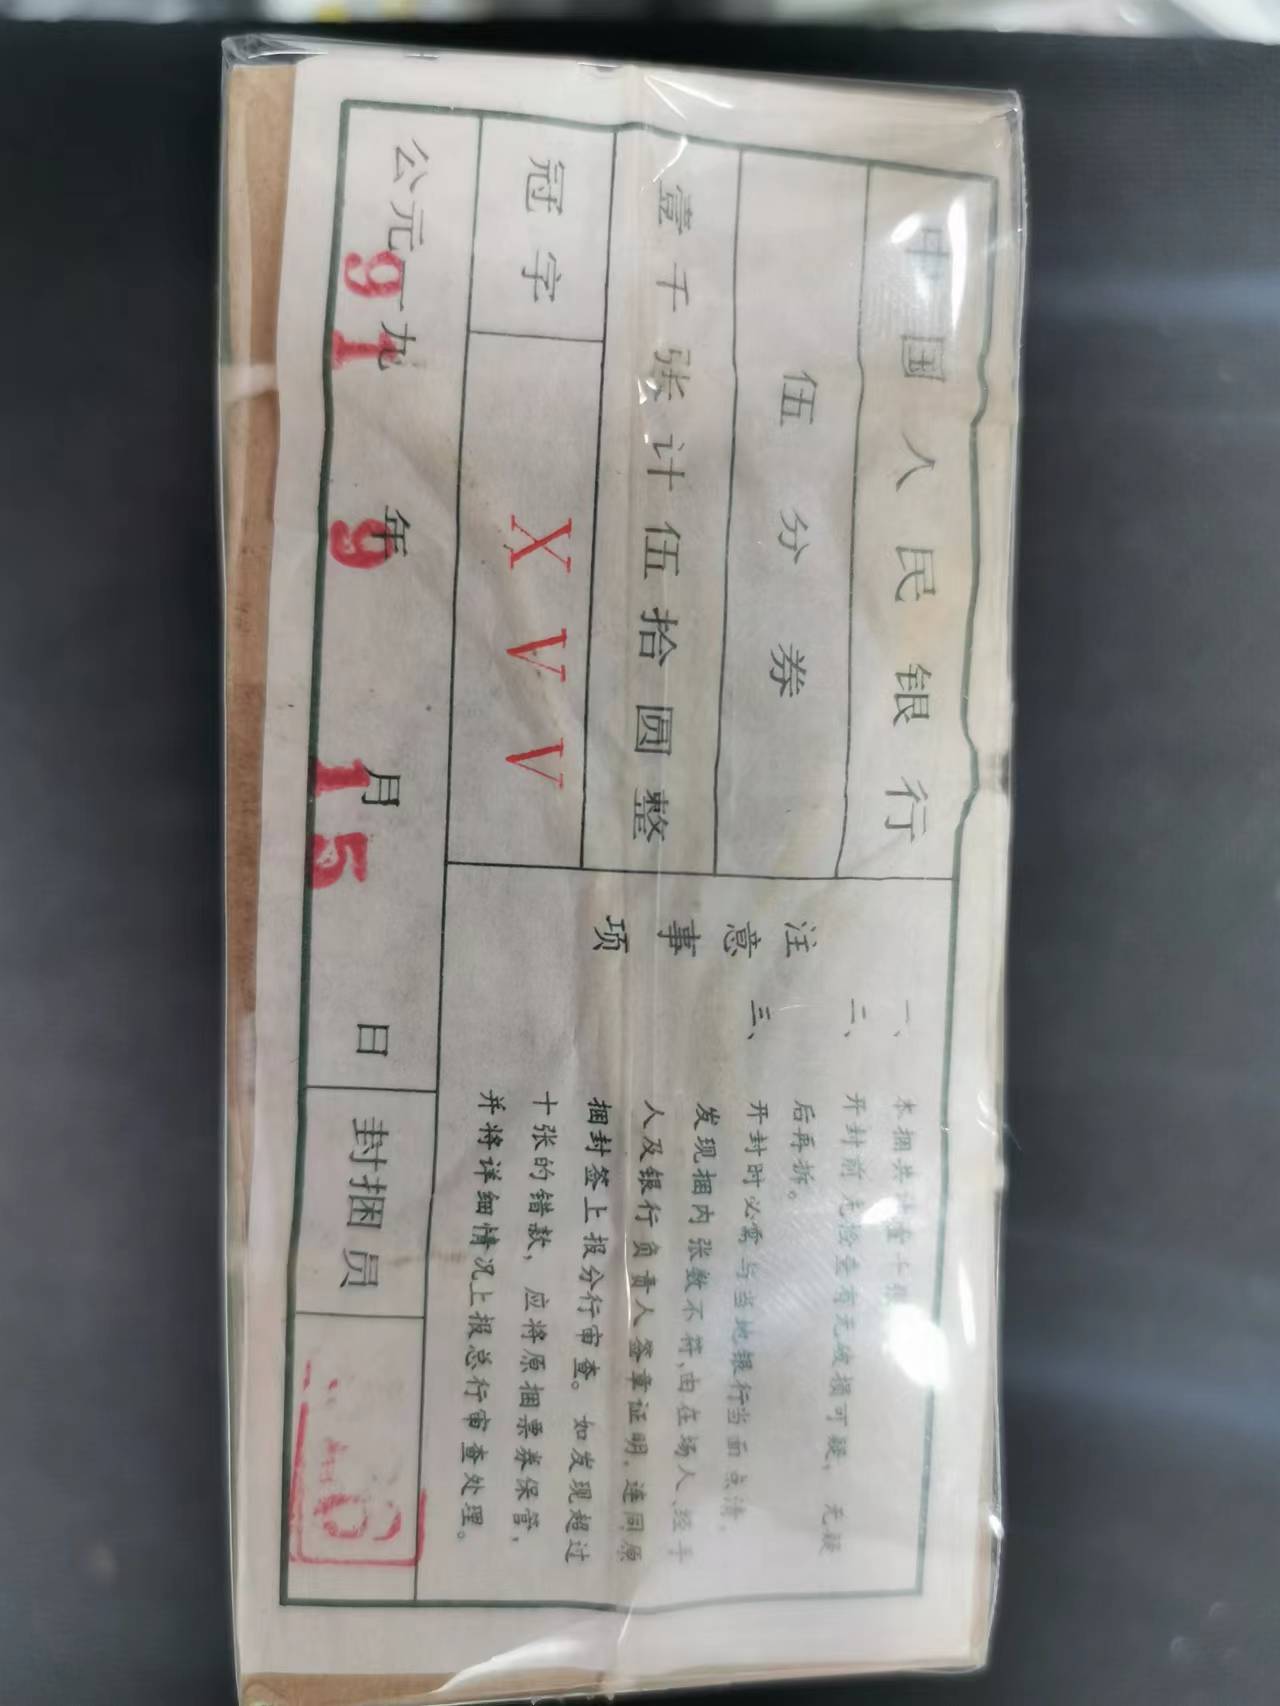 中国人民银行
伍分券
壹千张计伍拾圆整
冠字 XVV
公元一九91年9月15日 封捆员 6
注意事项
一、本捆共计壹千张
二、开封前先检查有无破损可疑，无疑
后再拆。
三、开封时必需与当地银行当面点清，
发现捆内张数不符，由在场人、经手
人及银行负责人签章证明，连同原
捆封签上报分行审查。如发现超过
十张的错款，应将原捆票券保管，
并将详细情况上报总行审查处理。